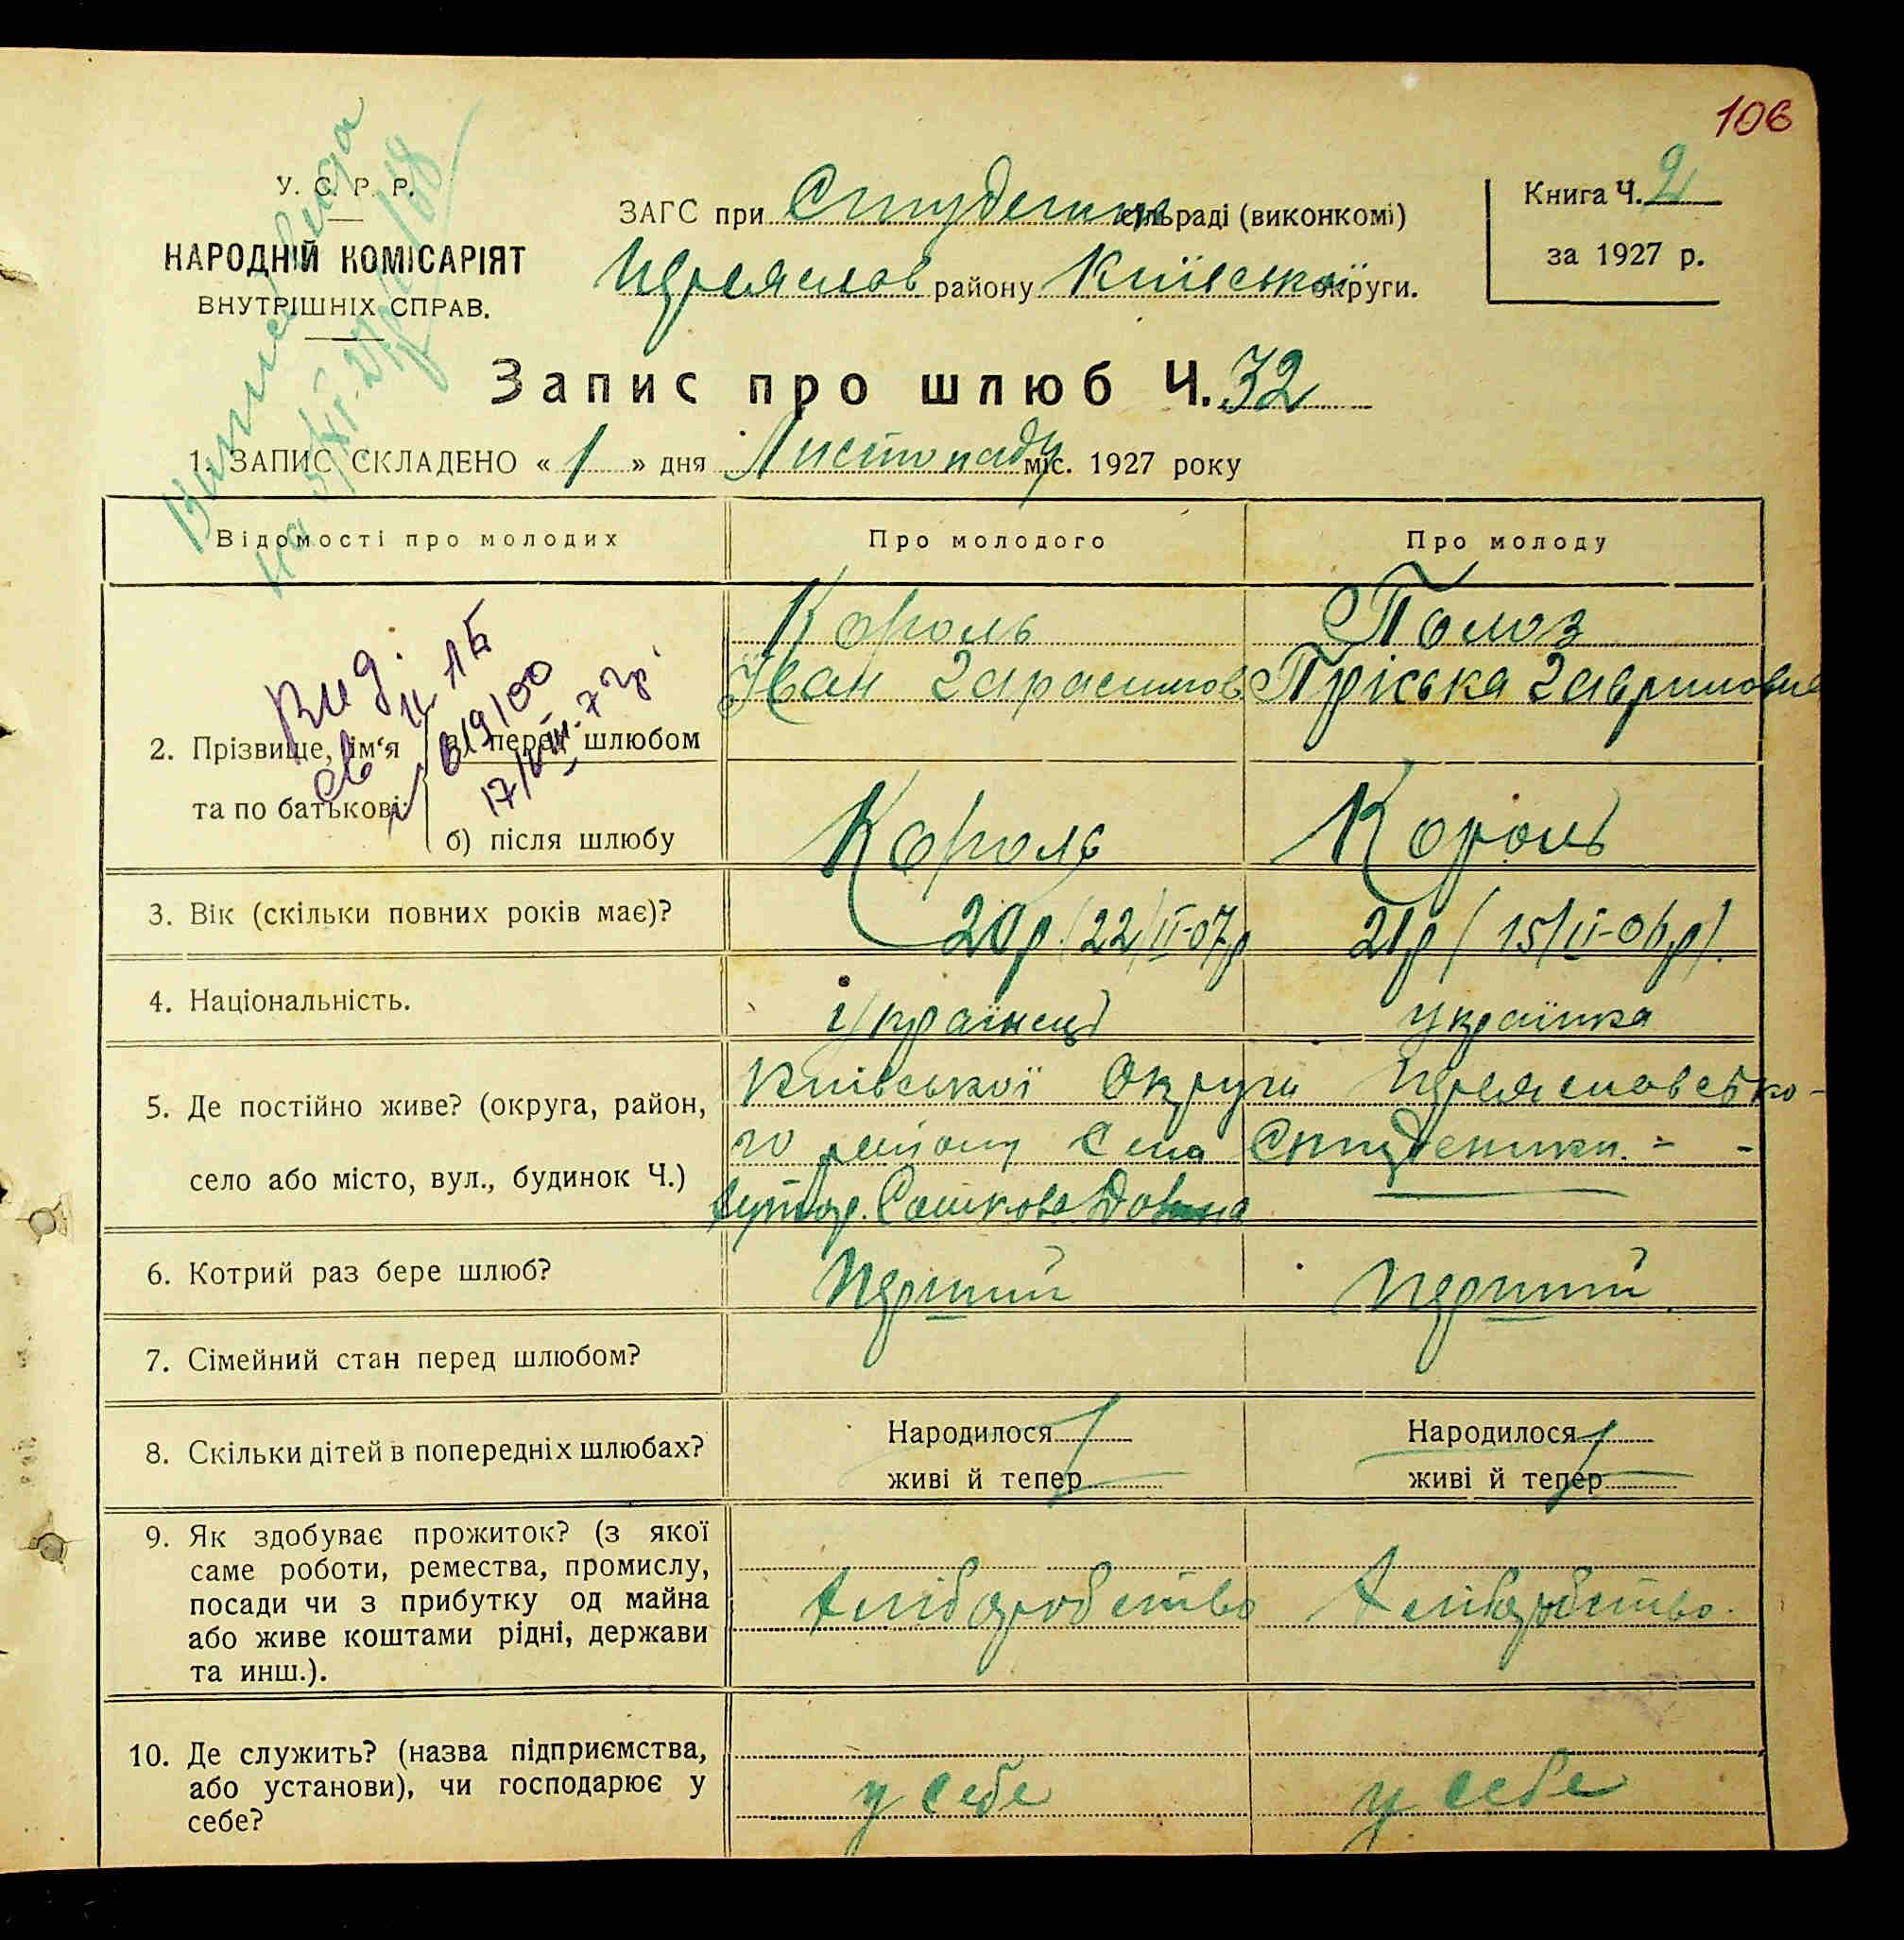 106
У. С. Р. Р.
НАРОДНІЙ КОМІСАРІЯТ
ВНУТРІШНІХ СПРАВ.
ЗАГС при Студеник сільраді (виконкомі)
Переяслов району Київської округи.
Книга Ч. 2
за 1927 р.
Запис про шлюб Ч. 32
1. ЗАПИС СКЛАДЕНО « 1 » дня Листопаду міс. 1927 року
Відомості про молодих Про молодого Про молоду
Король Полоз
Іван Гарасимов Пріська Гаврилов
2. Прізвище, ім'я та по батькові:
а) перед шлюбом
б) після шлюбу Король Король
Вид.
819100
17/VIII-7
3. Вік (скільки повних років має)? 20р (22/II-07р 21р (15/II-06р).
4. Національність. Українець українка
5. Де постійно живе? (округа, район, село або місто, вул., будинок Ч.)
Київської Округи Переяславсько-
го району Села Студеники. = -
6. Котрий раз бере шлюб? Перший Перший
7. Сімейний стан перед шлюбом?
8. Скільки дітей в попередніх шлюбах?
Народилося Народилося
живі й тепер живі й тепер
9. Як здобуває прожиток? (з якої
саме роботи, ремества, промислу,
посади чи з прибутку од майна
або живе коштами рідні, держави
та инш.).
хліборобство хліборобство.
10. Де служить? (назва підприємства,
або установи), чи господарює у
себе?
у себе у себе